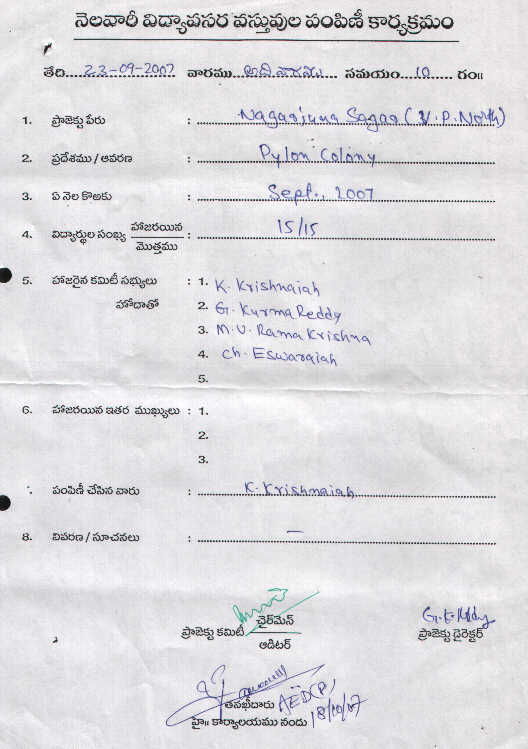 నెలవారీ విద్యావసర వస్తువుల పంపిణీ కార్యక్రమం
తేది....23-09-2007 వారము...ఆదివారము... సమయం...10...... గం॥
1. ప్రాజెక్టు పేరు : Nagarjuna Sagar (V.P. North)
2. ప్రదేశము / ఆవరణ : Pylon Colony
3. ఏ నెల కొఱకు : Sept., 2007
4. విద్యార్థుల సంఖ్య హాజరయిన / మొత్తము : 15/15
5. హాజరైన కమిటీ సభ్యులు : 1. K. Krishnaiah
హోదాతో 2. G. Kurma Reddy
3. M.V. Rama Krishna
4. Ch. Eswaraiah
5.
6. హాజరయిన ఇతర ముఖ్యులు : 1.
2.
3.
పంపిణీ చేసిన వారు : K. Krishnaiah
8. వివరణ / సూచనలు : —
ప్రాజెక్టు కమిటీ ఛైర్‌మెన్ / ఆడిటర్
G.K. Reddy
ప్రాజెక్టు డైరెక్టర్
తనఖీదారు AED(P)
హై॥ కార్యాలయము నందు 18/10/07